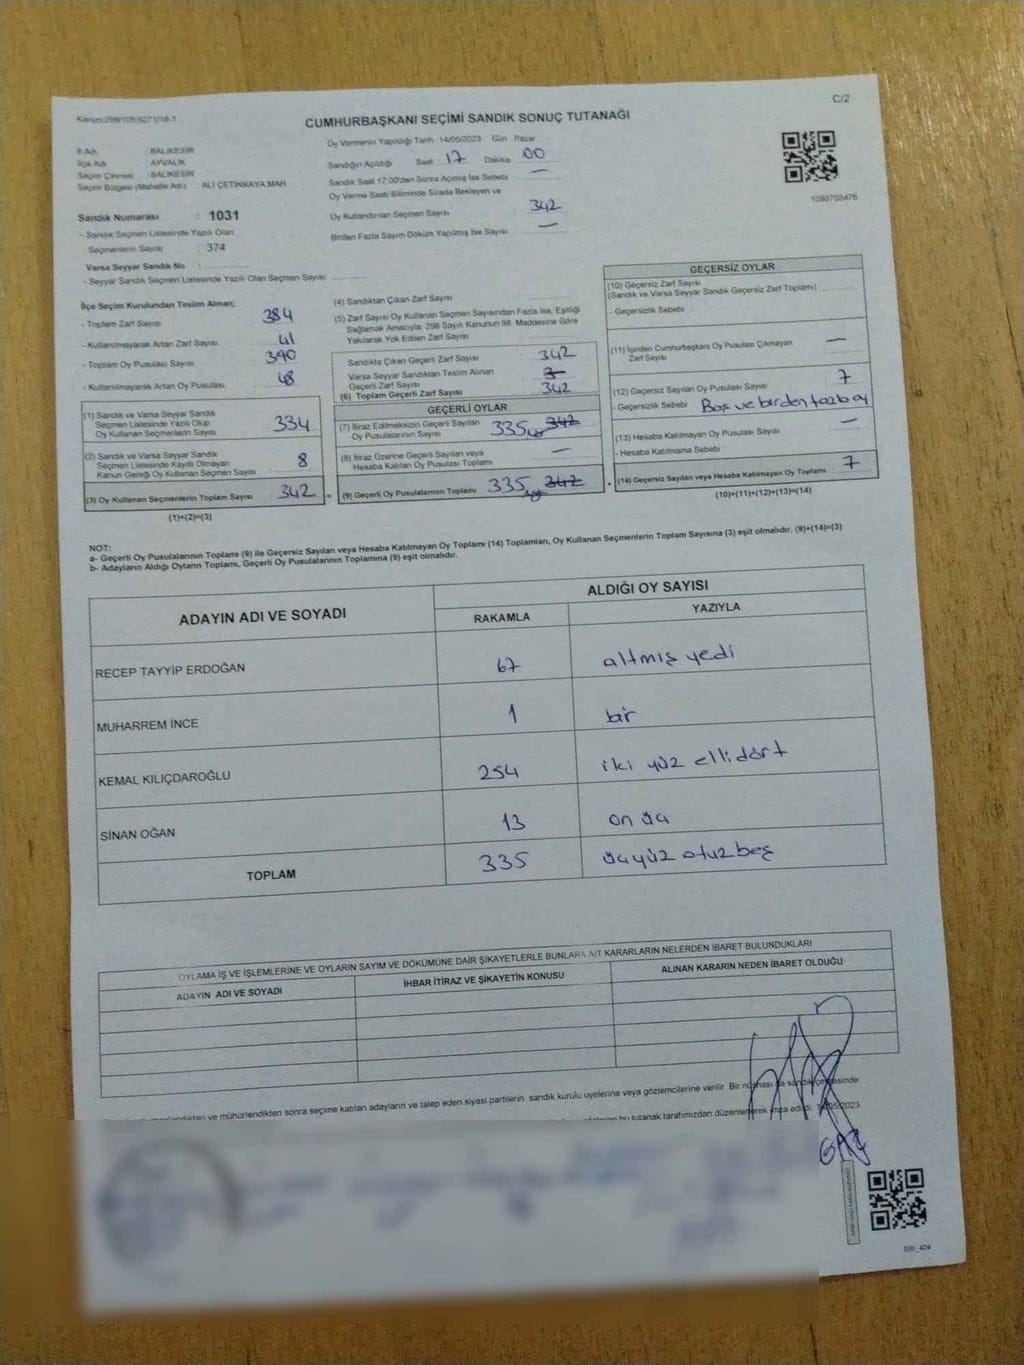 C/2
Kanun 298/105,6271/18-1
CUMHURBAŞKANI SEÇİMİ SANDIK SONUÇ TUTANAĞI
İl Adı : BALIKESİR
İlçe Adı : AYVALIK
Seçim Çevresi : BALIKESİR
Seçim Bölgesi (Mahalle Adı) ALİ ÇETİNKAYA MAH
Sandık Numarası : 1031
- Sandık Seçmen Listesinde Yazılı Olan
Seçmenlerin Sayısı : 374
Varsa Seyyar Sandık No :
- Seyyar Sandık Seçmen Listesinde Yazılı Olan Seçmen Sayısı
Oy Vermenin Yapıldığı Tarih 14/05/2023 Gün : Pazar
Sandığın Açıldığı Saat 17 Dakika 00
Sandık Saat 17:00'den Sonra Açılmış İse Sebebi —
Oy Verme Saati Bitiminde Sırada Bekleyen ve
Oy Kullandırılan Seçmen Sayısı 342
Birden Fazla Sayım Döküm Yapılmış İse Sayısı —
1090703476
İlçe Seçim Kurulundan Teslim Alınan;
- Toplam Zarf Sayısı 384
- Kullanılmayarak Artan Zarf Sayısı 41
- Toplam Oy Pusulası Sayısı 390
- Kullanılmayarak Artan Oy Pusulası 48
(1) Sandık ve Varsa Seyyar Sandık
Seçmen Listesinde Yazılı Olup
Oy Kullanan Seçmenlerin Sayısı 334
(2) Sandık ve Varsa Seyyar Sandık
Seçmen Listesinde Kayıtlı Olmayan
Kanun Gereği Oy Kullanan Seçmen Sayısı 8
(3) Oy Kullanan Seçmenlerin Toplam Sayısı 342 =
(1)+(2)=(3)
(4) Sandıktan Çıkan Zarf Sayısı
(5) Zarf Sayısı Oy Kullanan Seçmen Sayısından Fazla İse, Eşitliği
Sağlamak Amacıyla, 298 Sayılı Kanunun 98. Maddesine Göre
Yakılarak Yok Edilen Zarf Sayısı
Sandıkta Çıkan Geçerli Zarf Sayısı 342
Varsa Seyyar Sandıktan Teslim Alınan
Geçerli Zarf Sayısı
(6) Toplam Geçerli Zarf Sayısı 342
GEÇERLİ OYLAR
(7) İtiraz Edilmeksizin Geçerli Sayılan
Oy Pusulalarının Sayısı 335 342
(8) İtiraz Üzerine Geçerli Sayılan veya
Hesaba Katılan Oy Pusulası Toplamı —
(9) Geçerli Oy Pusulalarının Toplamı 335 342 +
GEÇERSİZ OYLAR
(10) Geçersiz Zarf Sayısı
(Sandık ve Varsa Seyyar Sandık Geçersiz Zarf Toplamı)
- Geçersizlik Sebebi :
(11) İçinden Cumhurbaşkanı Oy Pusulası Çıkmayan
Zarf Sayısı —
(12) Geçersiz Sayılan Oy Pusulası Sayısı 7
- Geçersizlik Sebebi Boş ve birden fazla oy
(13) Hesaba Katılmayan Oy Pusulası Sayısı —
- Hesaba Katılmama Sebebi
(14) Geçersiz Sayılan veya Hesaba Katılmayan Oy Toplamı 7
(10)+(11)+(12)+(13)=(14)
NOT:
a- Geçerli Oy Pusulalarının Toplamı (9) ile Geçersiz Sayılan veya Hesaba Katılmayan Oy Toplamı (14) Toplamları, Oy Kullanan Seçmenlerin Toplam Sayısına (3) eşit olmalıdır. (9)+(14)=(3)
b- Adayların Aldığı Oyların Toplamı, Geçerli Oy Pusulalarının Toplamına (9) eşit olmalıdır.
ADAYIN ADI VE SOYADI
ALDIĞI OY SAYISI
RAKAMLA YAZIYLA
RECEP TAYYİP ERDOĞAN 67 altmış yedi
MUHARREM İNCE 1 bir
KEMAL KILIÇDAROĞLU 254 iki yüz elli dört
SİNAN OĞAN 13 on üç
TOPLAM 335 üçyüz otuz beş
OYLAMA İŞ VE İŞLEMLERİNE VE OYLARIN SAYIM VE DÖKÜMÜNE DAİR ŞİKAYETLERLE BUNLARA AİT KARARLARIN NELERDEN İBARET BULUNDUKLARI
ADAYIN ADI VE SOYADI İHBAR İTİRAZ VE ŞİKAYETİN KONUSU ALINAN KARARIN NEDEN İBARET OLDUĞU
ve mühürlendikten sonra seçime katılan adayların ve talep eden siyasi partilerin sandık kurulu üyelerine veya gözlemcilerine verilir. Bir nüshası da sandık çevresinde
bu tutanak tarafımızdan düzenlenerek imza edildi. 14/05/2023
SSI_404